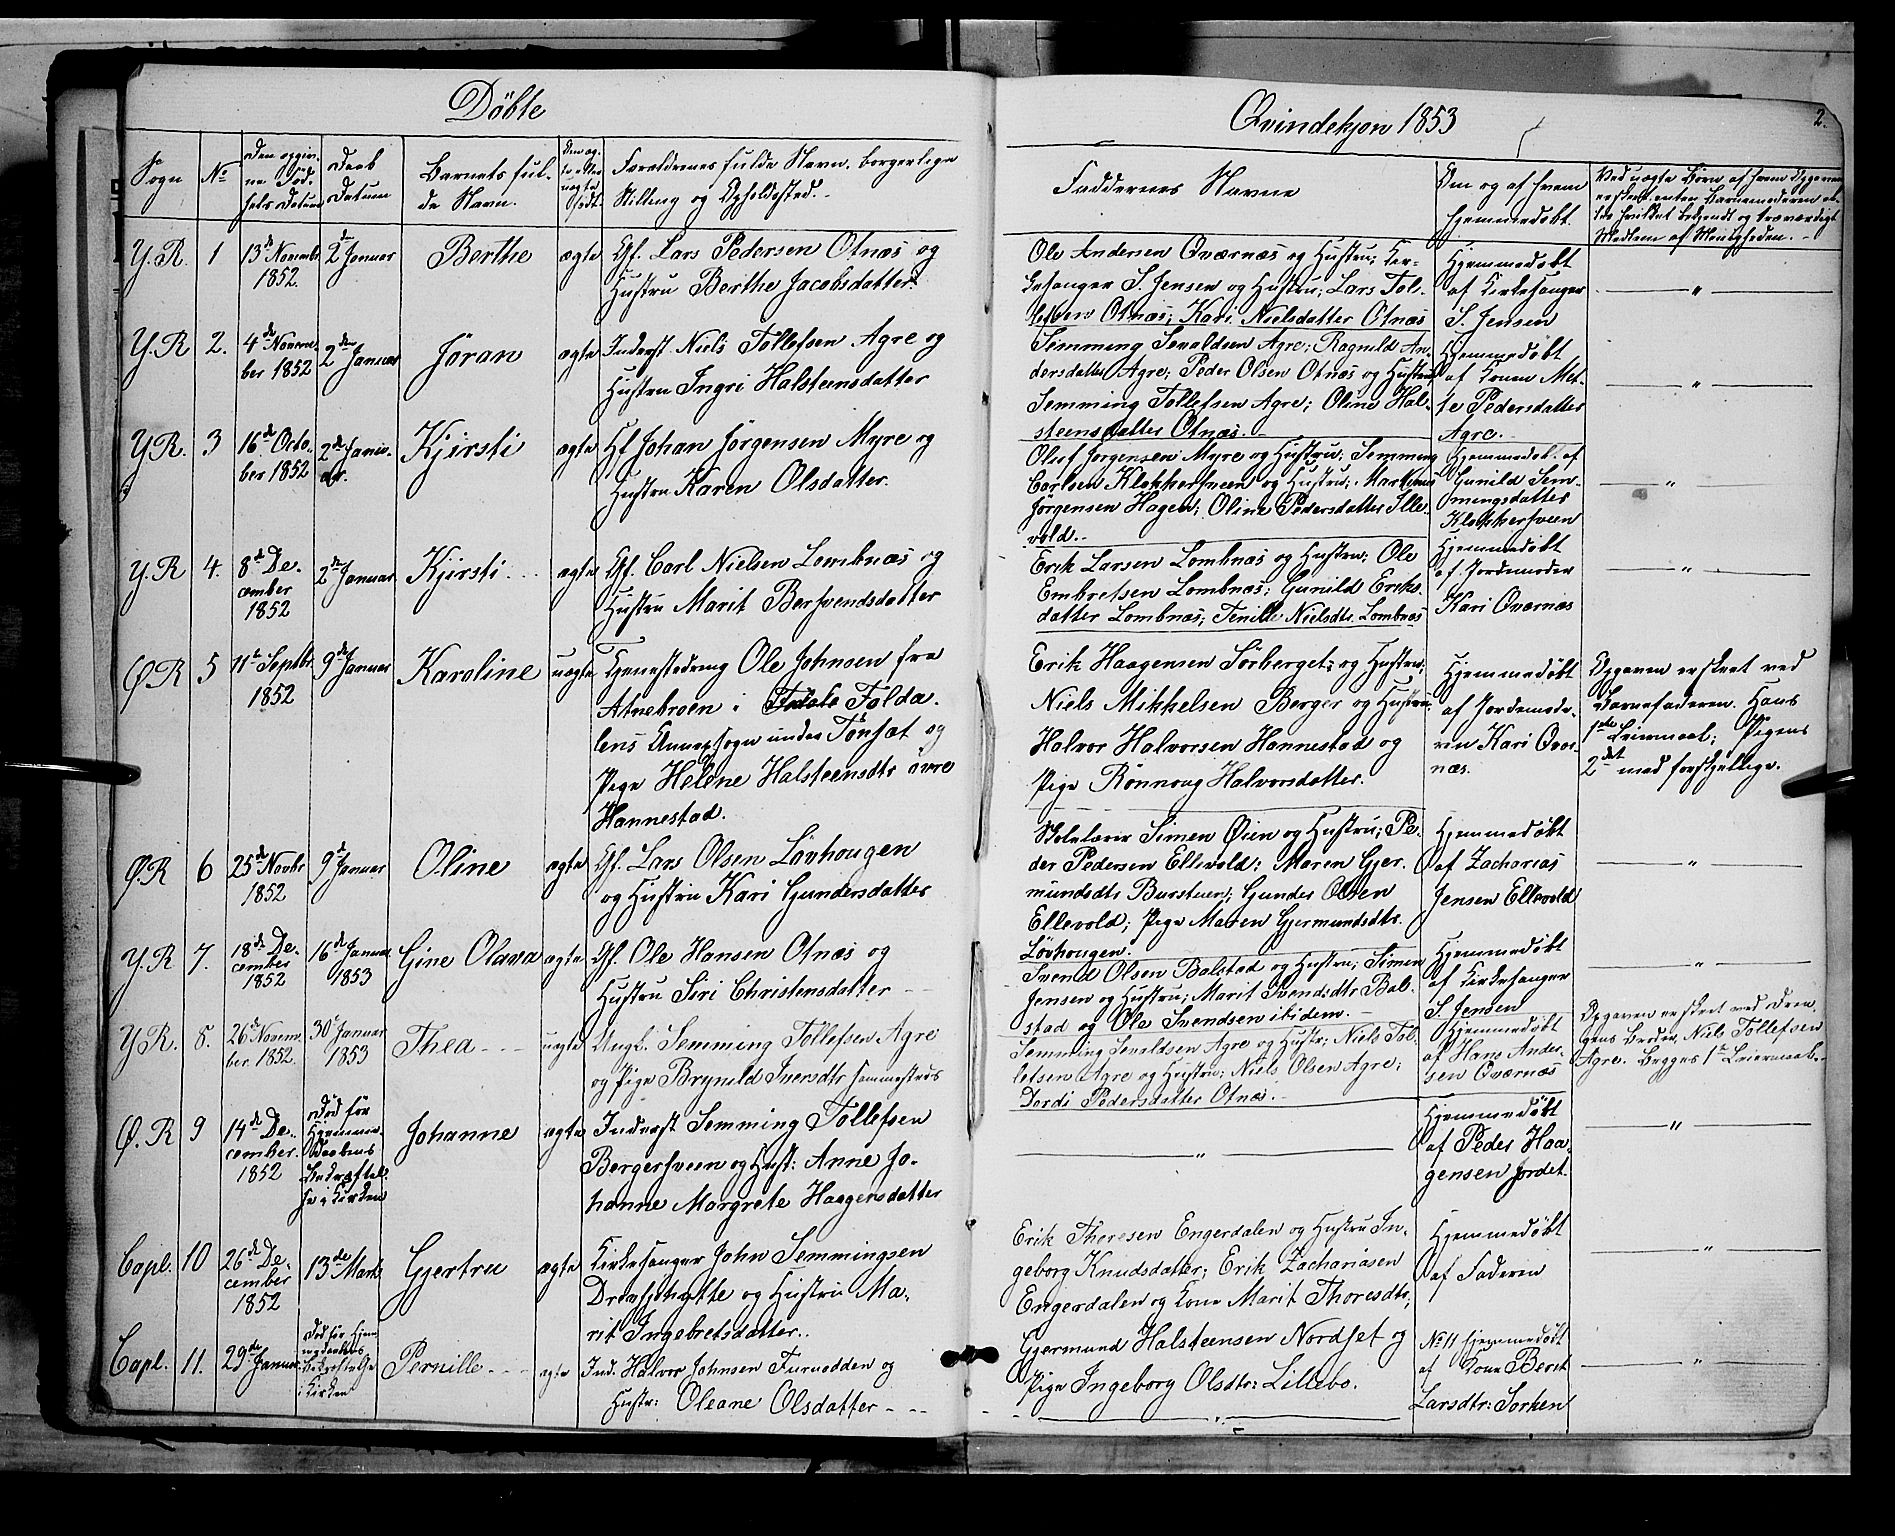 Döbte
Qvindekjøn 1853
2.
Sogn
No
Den opgivne Fødselsdatum
Daabs Datum
Barnets fulde Navn.
Om ægte eller uægte født.
Forældrenes fulde Navn, borgerlige Stilling og Opholdssted.
Faddernes Navne
Om og af hvem hjemmedøbt.
Ved uægte Børn af hvem Opgaven er skeet, enten Barnemoderen eller hvilket bekjendt og troværdigt Medlem af Menigheden.
Y.R. 1 13de Novembr 1852. 2den Januar Berthe ægte
Gf. Lars Pedersen Otnæs og
Hustru Berthe Jacobsdatter.
Ole Andersen Qværnæs og Hustru; Kir-
kesanger S. Jensen og Hustru; Lars Tol-
lefsen Otnæs; Kari Nielsdatter Otnæs
Hjemmedøbt
af Kirkesanger
S. Jensen
— " —
Y.R 2. 4de Novem-
ber 1852 2den Januar Jöran ægte
Inderst Niels Tollefsen Agre og
Hustru Ingri Halsteensdatter
Semming Sevaldsen Agre; Ragnild An-
dersdatter Agre; Peder Olsen Otnæs og Hustru
Semming Tollefsen Agre; Oline Hal-
steensdatter Otnæs.
Hjemmedøbt
af Konen Met-
te Pedersdatter
Agre.
— " —
Y.R. 3 16de Octo-
ber 1852 2den Janu-
ar. Kjirsti ægte
Gf Johan Jörgensen Myre og
Hustru Karen Olsdatter.
Oluf Jorgensen Myre og Hustru; Semming
Carlsen Klokkersveen og Hustru; Markus
Jörgensen Hagen; Oline Pedersdatter Ille-
vold.
Hjemmedøb. af
Gunild Sem-
mingsdatter
Klokkersveen
— " —
Y.R 4. 8de De-
cember
1852 2den Januar Kjirsti ægte
Gf. Carl Nielsen Lombnæs og
Hustru Marit Bersvendsdatter
Erik Larsen Lombnæs og Hustru; Ole
Embretsen Lombnæs; Gunild Eriks-
datter Lombnæs; Tenille Nielsdtr. Lombnæs
Hjemmedøbt
af Jordemoder
Kari Qværnæs
— " —
Ø R 5 11te Septbr
1852 9de Januar Karoline uægte
Tjenestedreng Ole Johnsen fra
Atnebroen i Tolda-
lens Annexsogn under Tönset og
Pige Helene Halsteensdtr øvre
Hannestad.
Erik Haagensen Sörberget; og Hustru;
Niels Mikkelsen Berger og Hustru
Halvor Halvorsen Hannestad og
Pige Rönnoug Halvorsdatter.
Hjemmedøbt
af Jordemode-
ren Kari Qvær-
næs.
Opgaven er skeet ved
Barnefaderen. Hans
1ste Leiermaal; Pigens
2det med forskjellige.
Ø.R 6 25de Novbr
1852 9de Januar Oline ægte
Gf. Lars Olsen Lövhougen
og Hustru Kari Gundersdatter
Skolelærer Simen Øien og Hustru; Pe-
der Pedersen Ellevold; Maren Gjer-
mundsdtr Burstuen; Gunder Olsen
Ellevold; Pige Maren Gjermundsdtr.
Lövhougen.
Hjemmedøbt
af Zacharias
Jensen Ellevold
— " —
Y.R 7. 18de De-
cember
1852 16de Januar
1853 Gine Olava ægte
Gf. Ole Hansen Otnæs og
Hustru Siri Christensdatter
Svend Olsen Balstad og Hustru; Simen
Jensen og Hustru; Marit Svendsdtr Bal-
stad og Ole Svendsen ibidem.
Hjemmedøbt
af Kirkesanger
S. Jensen
— " —
Y.R. 8. 26de Novem-
ber. 1852. 30te Januar
1853 Thea uægte
Ungk. Semming Tollefsen Agre
og Pige Brynild Iversdtr sammesteds
Semming Sevaldsen Agre og Hustr; Niels Tol-
lefsen Agre og Hustru; Niels Olsen Agre;
Dordi Pedersdatter Otnæs.
Hjemmedøbt
af Hans Ander-
sen Qværnæs
Opgaven er skeet ved Dren-
gens Broder, Niels Tollefsen
Agre. Begges 1ste Leiermaal.
Ø.R 9 14de De-
cember.
1852 Død før
Hjemme-
Daabens
Bekræftel-
se i Kirken Johanne ægte
Inderst Semming Tollefsen
Bergersveen og Hust: Anne Jo-
hanne Margrete Haagensdatter
— " —
Hjemmedøbt
af Peder Haa-
gensen Jordet.
— " —
Capl. 10 26de De-
cember
1852 13de Marts Gjertru ægte
Kirkesanger John Semmingsen
Drevsjhytte og Hustru Ma-
rit Ingebretsdatter.
Erik Thoresen Engerdalen og Hustru In-
geborg Knudsdatter; Erik Zachariasen
Engerdalen og Kone Marit Thoresdtr;
Gjermund Halsteensen Nordset og
Pige Ingeborg Olsdtr: Lillebo.
Hjemmedøbt
af Faderen
— " —
Capl. 11. 29de Januar Død før Hjem-
medaabens
Bekræftelse
i Kirken Pernille ægte
Ind. Halvor Johnsen Furuodden og
Hustr: Oleane Olsdatter
— " —
No 11 Hjemmedøbt
af Kone Berit
Larsdtr: Sorken
— " —